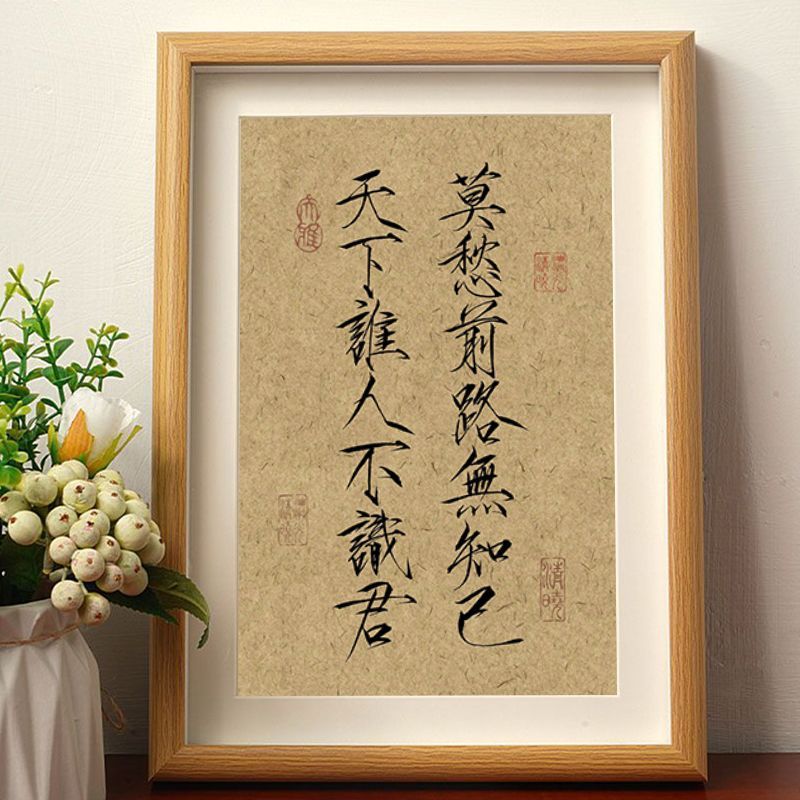 莫愁前路無知己
天下誰人不識君
清曉